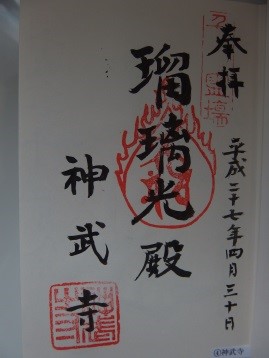 奉拝
平成二十七年四月三十日
瑠璃光殿
神武寺
④神武寺